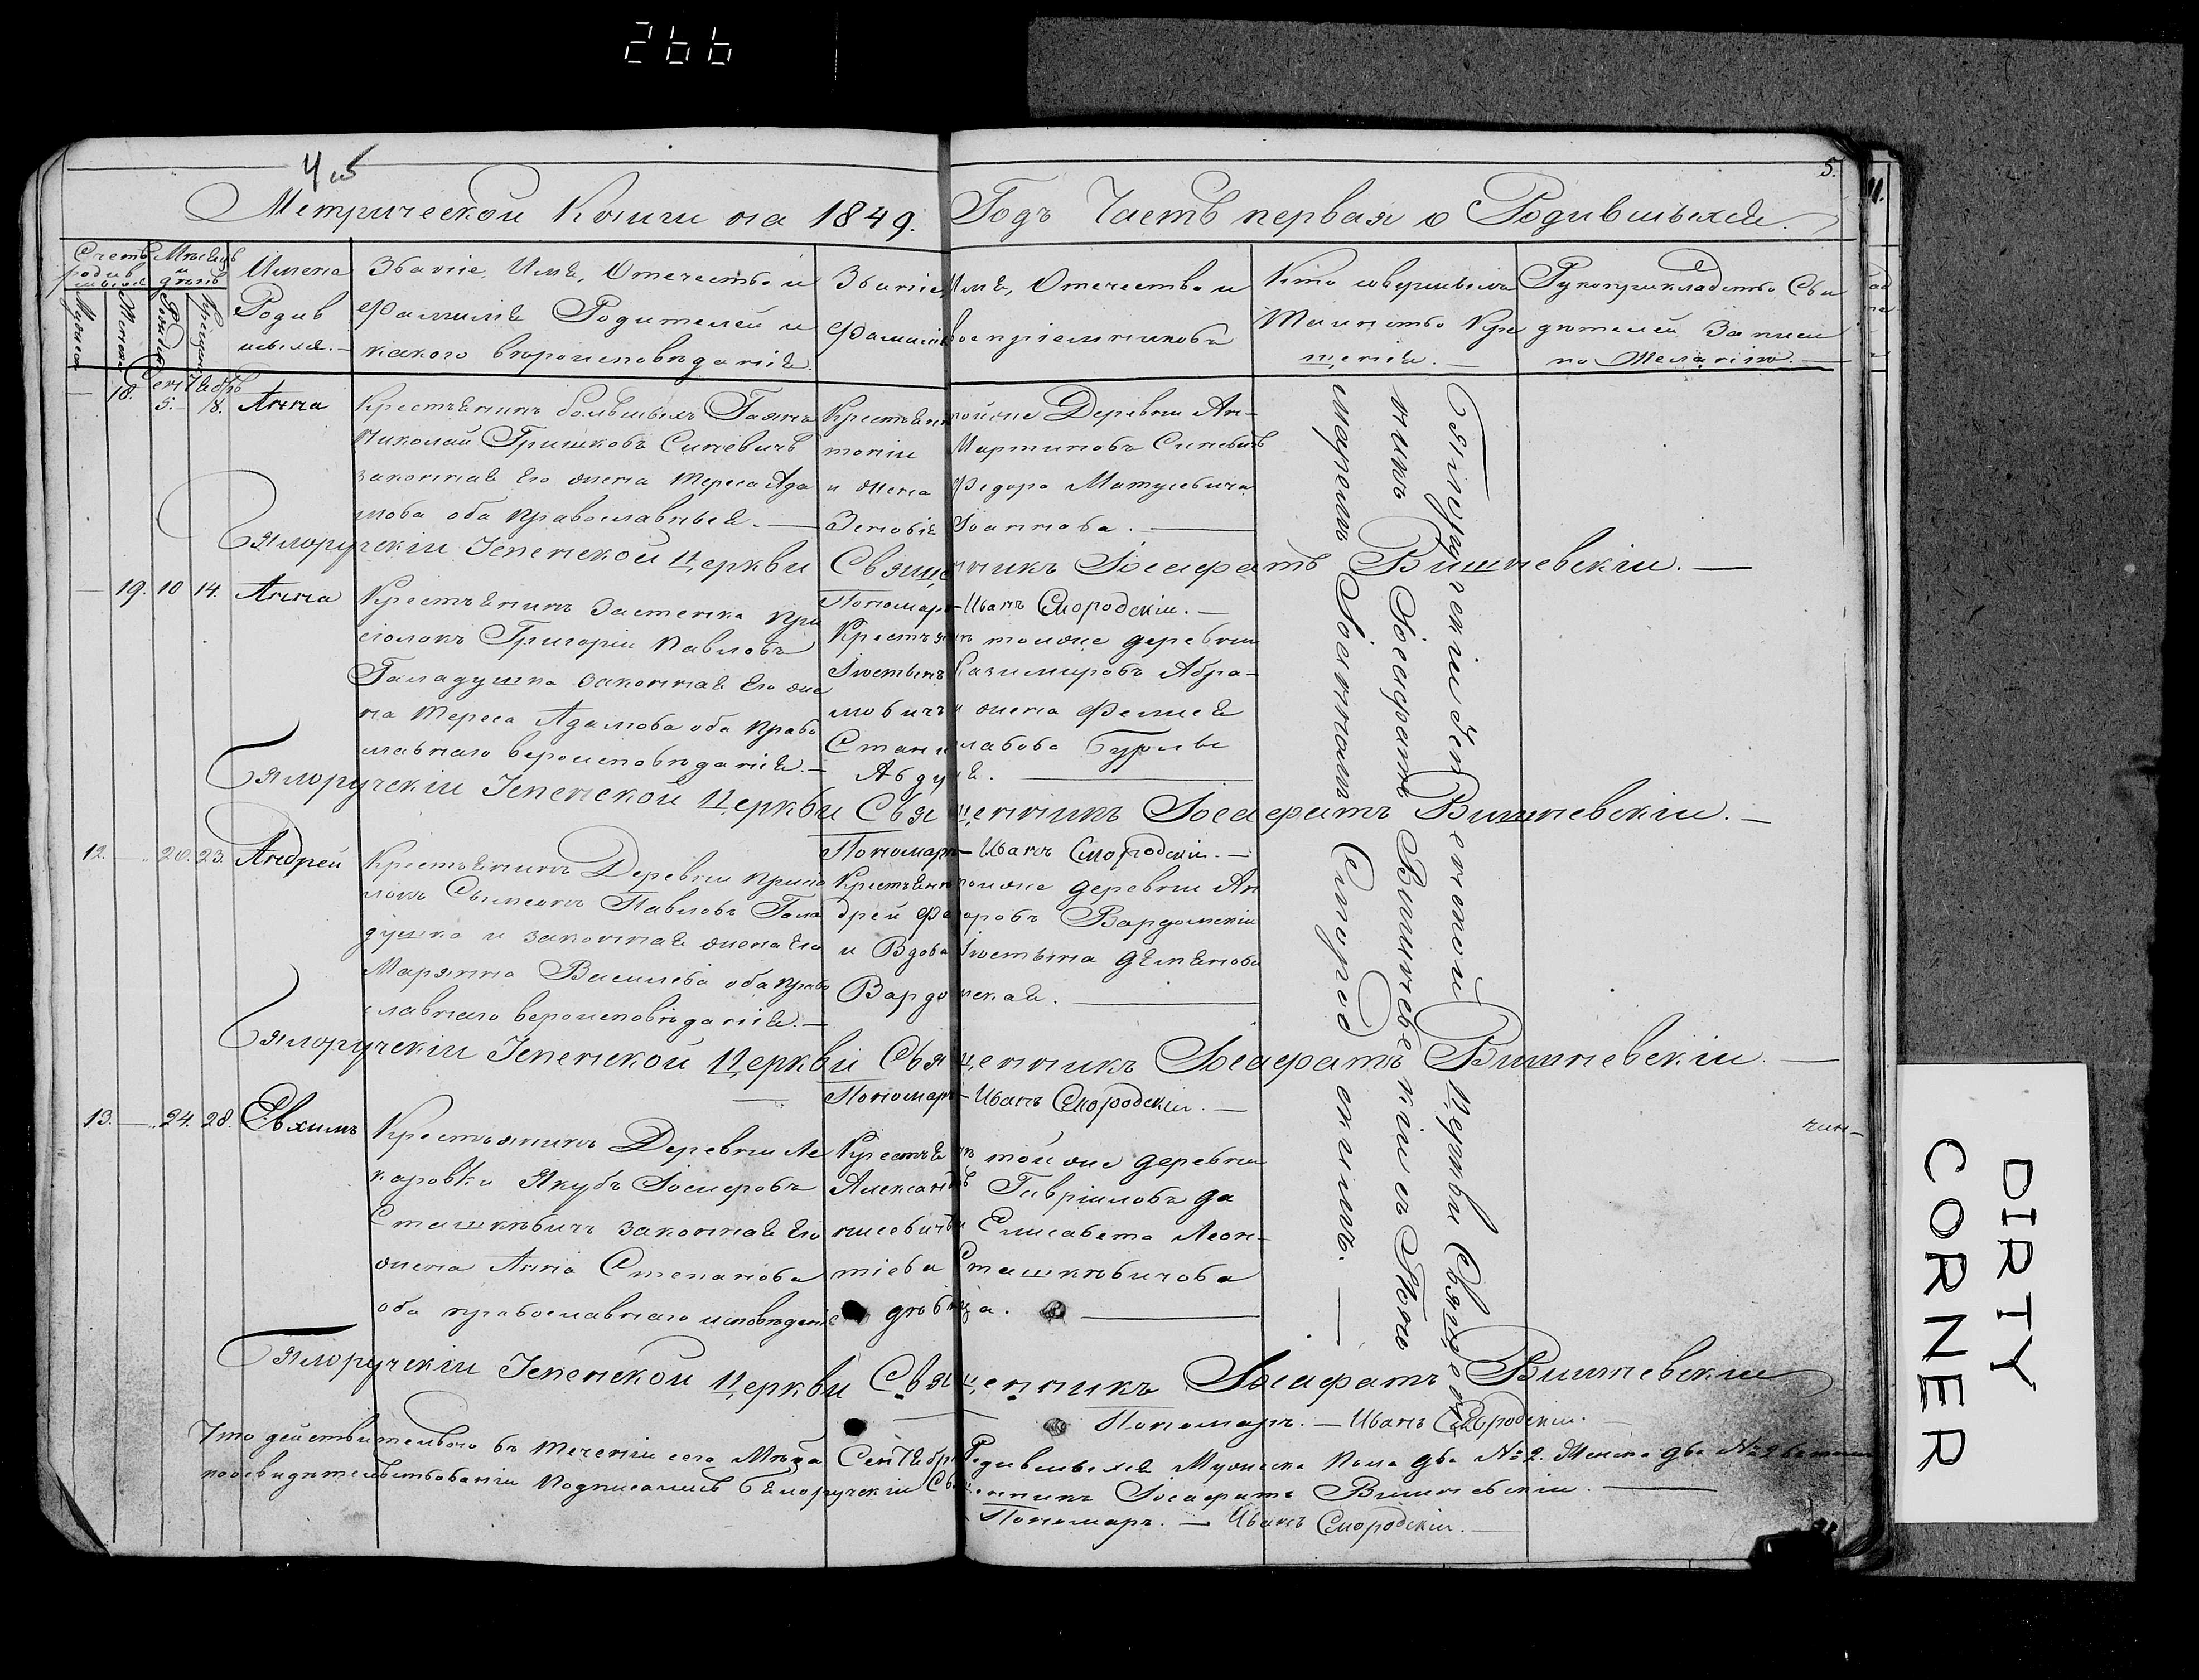 266
4 об
5.
Метрической Книги на 1849. Годъ Часть первая о Родившыхся.
Счетъ родив шыхся
Мѣсяцъ и день
Имена Родив шыхся.
Званіе, Имя, Отечество и Фамилія Родителей и какого вѣроисповѣданія.
Званіе, Имя, Отечество и Фамилія воспріемниковъ
Кто совершилъ Таинство Кре щенія.
Рукоприкладство Сви дѣтелей Записи по Желанію.
Мужеска
Женска
Рожденія
Крещенія
Сентябрь
18. 5. 18. Анна
Крестьянинъ большыхъ Гаянъ
Николай Гришковъ Синевичъ
законная Его жена Тереса Ада
мова оба православныя.
Крестьянинъ тойже Деревни Ан-
тоній Мартиновъ Синевичъ
и жена Федора Матусевича
Зеновія Іоаннова.
Бялоручскій Іепенской Церкви Священникъ Іосафатъ Вишневскій.
Пономаръ - Иванъ Смородскій.
19. 10 14. Анна
Крестьянинъ Застенка При
столокъ Григорій Павловъ
Галадушка законная Его же
на Тереса Адамова оба право
славнаго вероисповѣданія.
Крестьянинъ тойже деревни
Іюстынъ Казимировъ Абра-
мовичъ и жена Фелиея
Станиславова Бурлы
Авдуля.
Бялоручскій Іепенской Церкви Священникъ Іосафатъ Вишневскій.
Пономаръ - Иванъ Смородскій.
12. 20. 23. Андрей
Крестьянинъ Деревни присто
локъ Сымеонъ Павловъ Гала
душка и законная жена Его
Марянна Василева оба право
славнаго вероисповѣданія.
Крестьянинъ тойже деревни Ан
дрей Фадоровъ Вардомскій
и Вдова Іюстына Демянова
Вардомская.
Бялоручскій Іепенской Церкви Священникъ Іосафатъ Вишневскій.
Пономаръ - Иванъ Смородскій.
13. 24. 28. Евхимъ
Крестьянинъ Деревни Ле
каровки Якубъ Іосиеровъ
Сташкѣвичъ законная Его
жена Анна Степанова
оба православнаго исповѣданія
Крестьянинъ тойже деревни
Александръ Гавріиловъ да
нисевичъ и Елисавета Леон-
тіева Сташкѣвичова
дѣвица.
Бялоручскій Іепенской Церкви Священникъ Іосафатъ Вишневскій
Пономаръ. - Иванъ Смородскій.
Бялоручскій Іепенской Церкви Священ
никъ Іосафатъ Вишневскій съ Поно
маремъ Іоанномъ Смородскимъ.
Что действительно въ теченіи сего Мѣсяца Сентября Родившыхся Мужеска Пола два №2. Женска два №2
по освидѣтельствованіи Подписались Бялоручскій Священникъ Іосафатъ Вишневскій.
Пономаръ. - Иванъ Смородскій.
DIRTY
CORNER